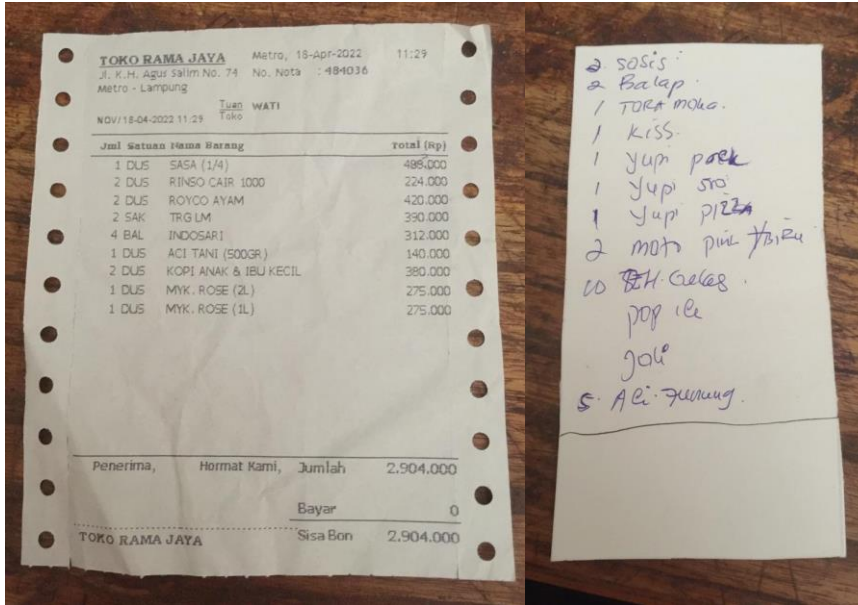 TOKO RAMA JAYA Metro, 18-Apr-2022 11:29
Jl. K.H. Agus Salim No. 74 No. Nota : 484036
Metro - Lampung
Tuan WATI
NOV/18-04-2022 11:29 Toko
Jml Satuan Nama Barang Total (Rp)
1 DUS SASA (1/4) 488.000
2 DUS RINSO CAIR 1000 224.000
2 DUS ROYCO AYAM 420.000
2 SAK TRG LM 390.000
4 BAL INDOSARI 312.000
1 DUS ACI TANI (500GR) 140.000
2 DUS KOPI ANAK & IBU KECIL 380.000
1 DUS MYK. ROSE (2L) 275.000
1 DUS MYK. ROSE (1L) 275.000
Penerima, Hormat Kami, Jumlah 2.904.000
Bayar 0
TOKO RAMA JAYA Sisa Bon 2.904.000
2 SOSIS
2 Balap
1 TORA MOKA
1 KISS
1 Yupi pack
1 Yupi 500
1 Yupi PIZZA
2 moto pink /BIRU
10 TEH Gelas
pop ice
Joli
5 Aci